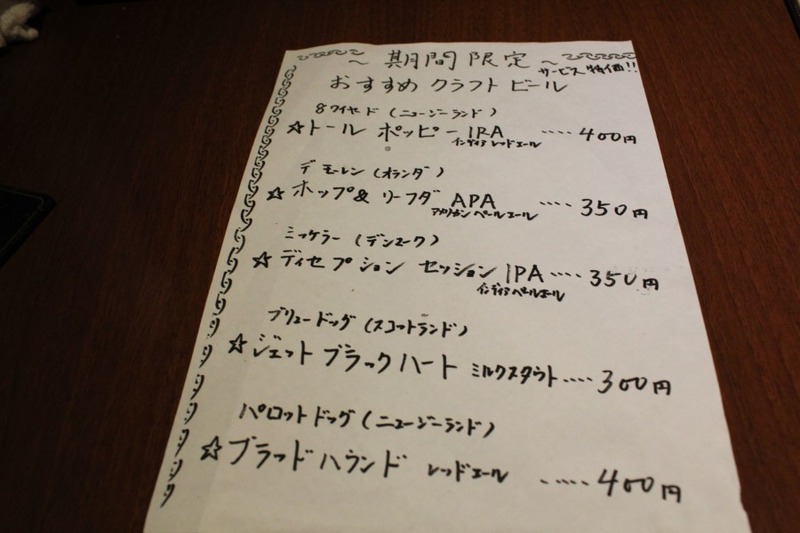 ～ 期間限定 ～
サービス特価!!
おすすめ クラフト ビール
8ワイヤード (ニュージーランド)
☆トール ポッピー IRA ····· 400円
インディア レッドエール
デモーレン (オランダ)
☆ ホップ& リーフダ APA ····· 350円
アメリカン ペールエール
ミッケラー (デンマーク)
☆ ディセプション セッション IPA ····· 350円
インディア ペールエール
ブリュードッグ (スコットランド)
☆ジェット ブラックハート ミルクスタウト ····· 300円
パロットドッグ (ニュージーランド)
☆ブラッドハウンド レッドエール ····· 400円